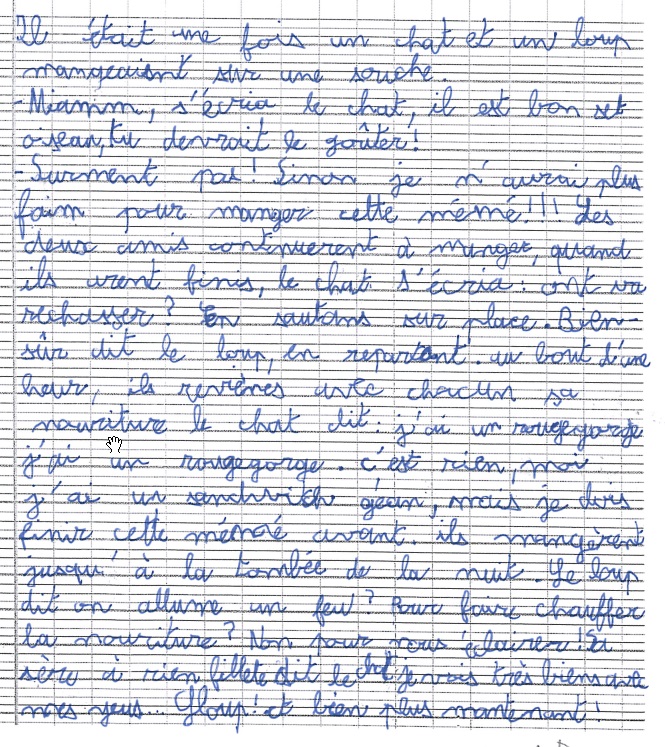 Il était une fois un chat et un loup
mangeaient sur une souche.
- Miamm, s'écria le chat, il est bon set
oiseau, tu devrait le goûter!
- Surment pas! Sinon je n'aurai plus
faim pour manger cette mémé!!! Les
deux amis continuerent à manger, quand
ils urent finis, le chat s'écria: ont va
rechasser? En sautans sur place. Bien-
sûr dit le loup, en repartant. au bout d'une
heur, ils revènes avec chacun sa
nouriture le chat dit: j'ai un rougegorge
j'ai un rougegorge. c'est rien, moi
j'ai un sandwich géan, mais je dois
finir cette mémé avant. ils mangèrent
jusqu'à la tombée de la nuit. Le loup
dit on allume un feu? Pour faire chauffer
la nouriture? Non pour nous éclairer! Sa
sère à rien fillete dit le chat je vois très biens avec
mes yeus... Gloup! et bien plus mantenant!